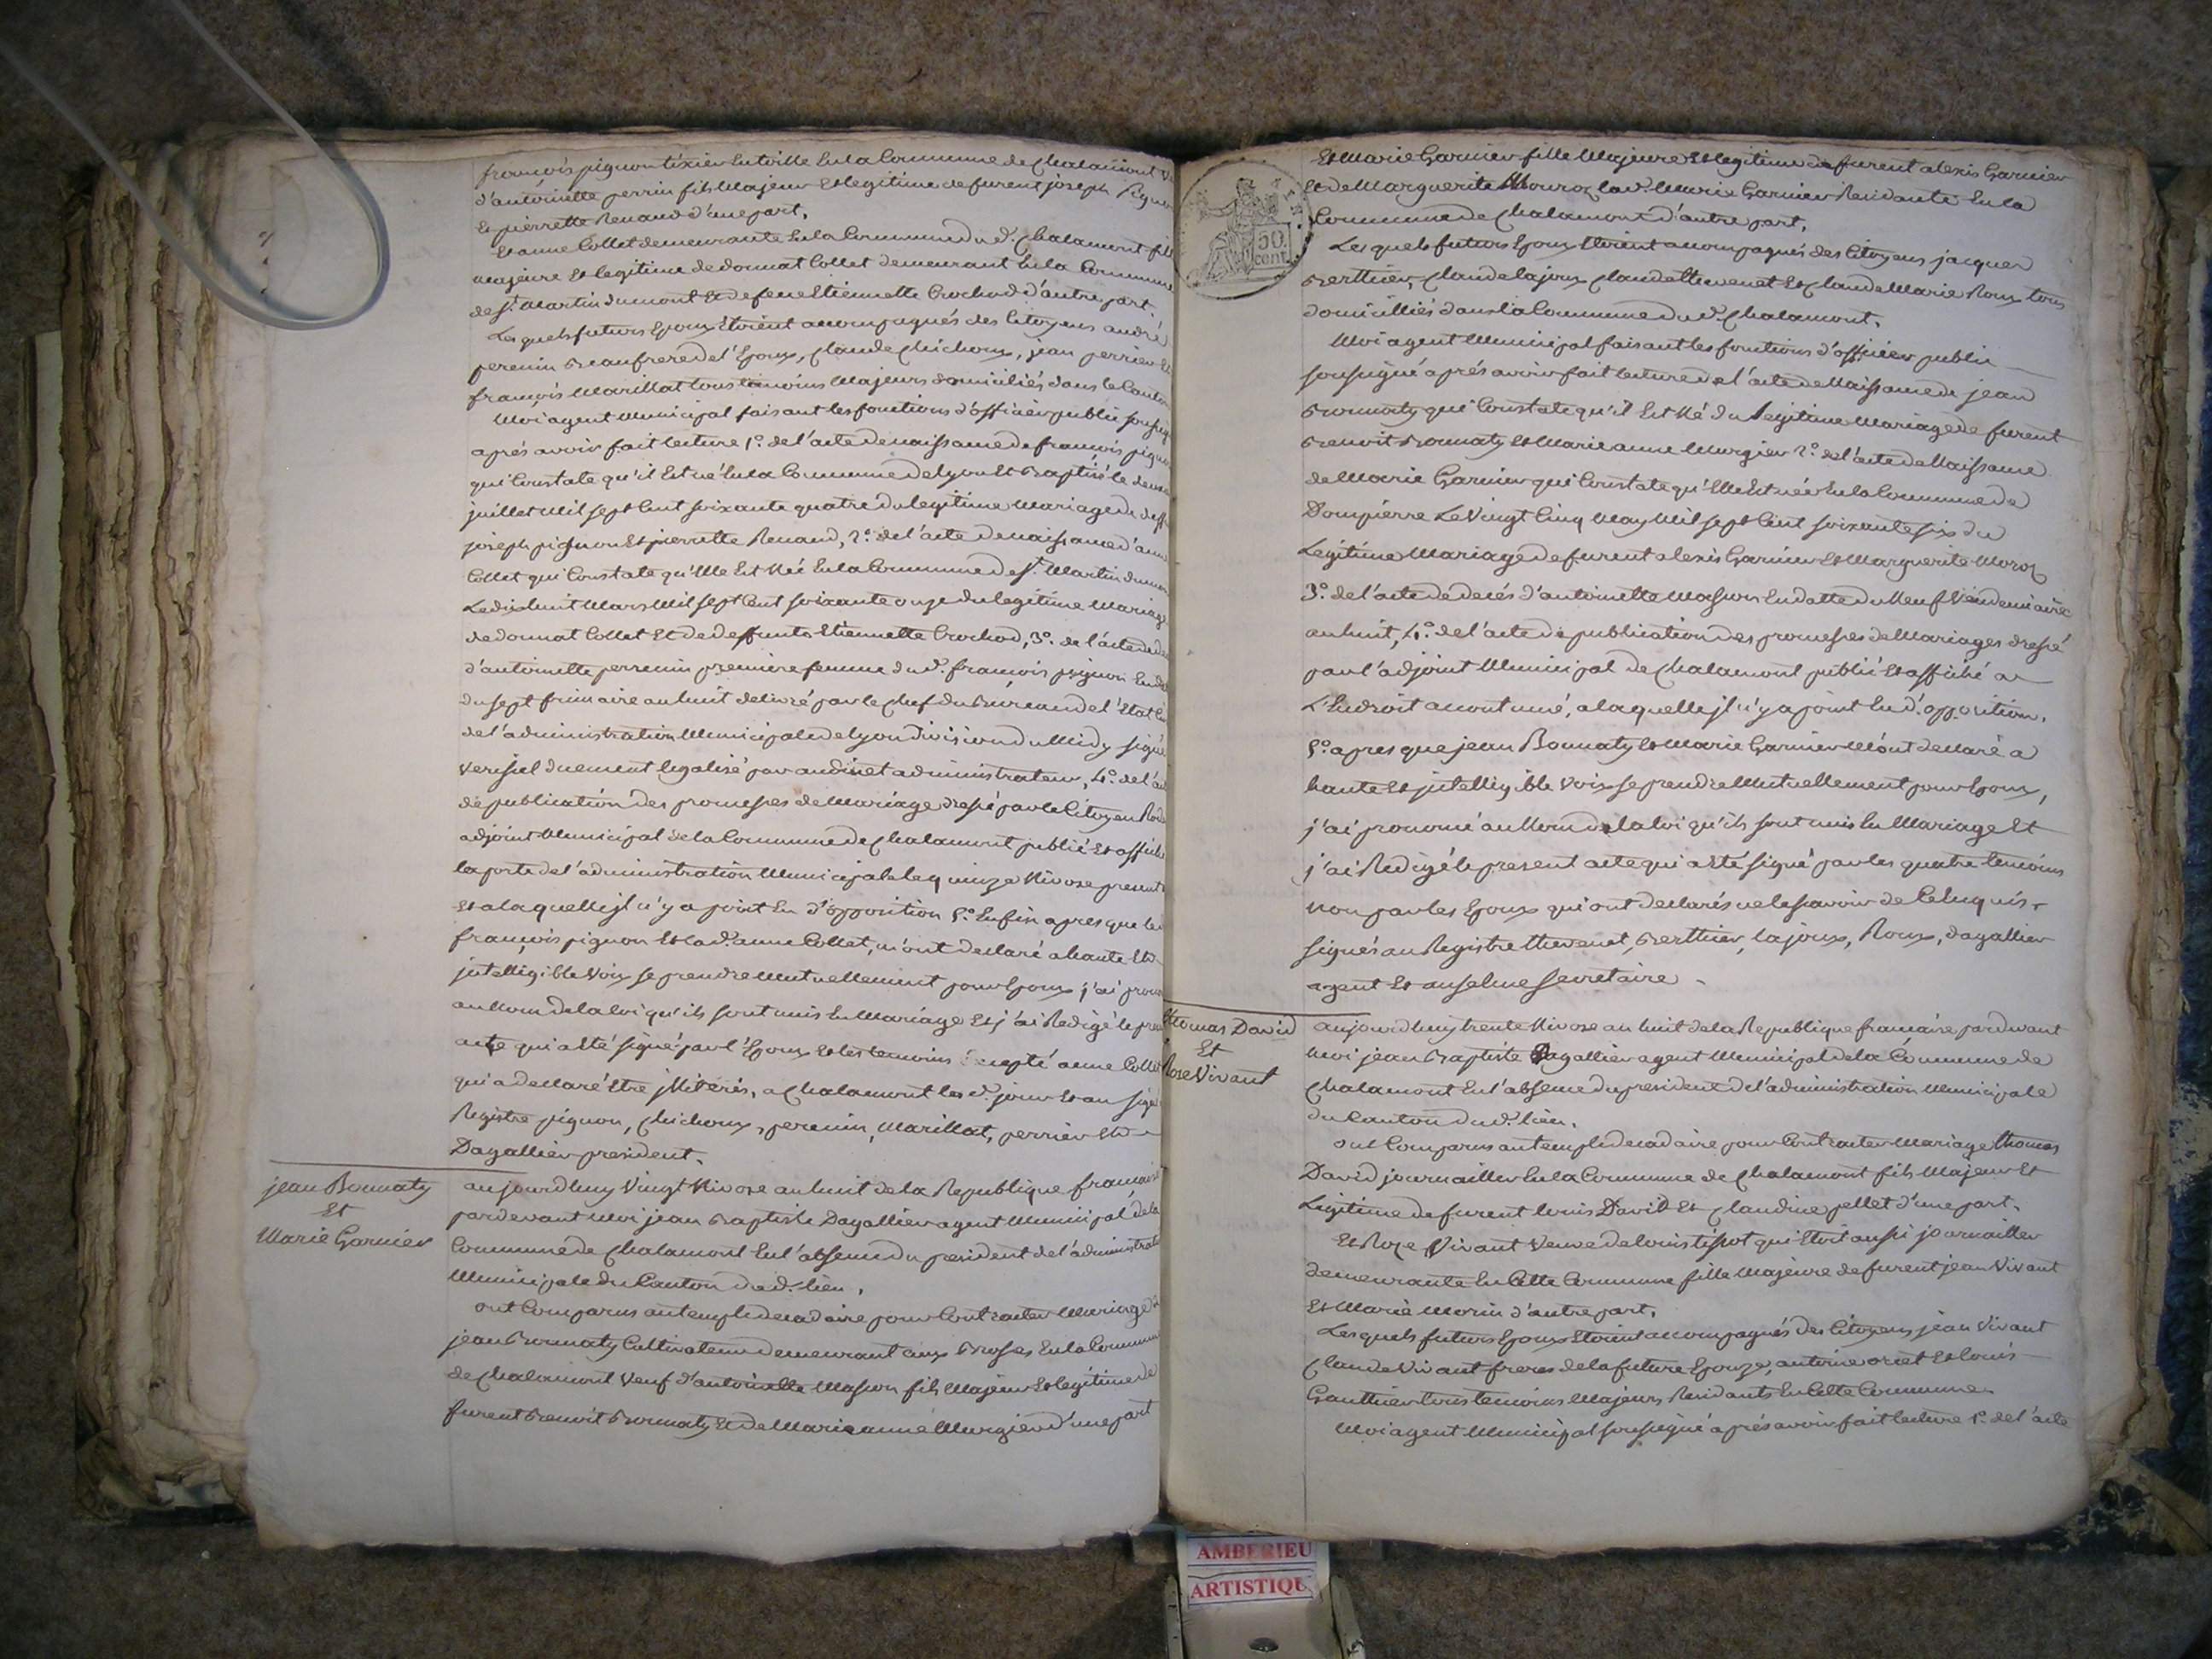 françois pignon tixier en toille en la Commune de Chalamont
d'antoinette perrin fils majeur et legitime de furent joseph Pignon
et pierrette Renaud d'une part,
et anne Collet demeurante en la Commune du d. Chalamont fille
majeure et legitime de donnat Collet demeurant en la Commune
de st. Martin du mont et de feue Etiennette Crochod d'autre part.
Lesquels futurs Epoux étoient accompagnés des Citoyens andré
perenin Beaufrere de l'Epoux, Claude Chichoux, jean perrier et
françois Marillat tous temoins Majeurs domiciliés dans le Canton
Moi agent Municipal faisant les fonctions d'officier public
après avoir fait lecture 1°. de l'acte de naissance de françois pignon
qui Constate qu'il Est né en la Commune de Lyon et Baptisé le
juillet Mil sept Cent soixante quatre du legitime Mariage de
joseph pignon et pierrette Renaud, 2°. de l'acte de naissance d'anne
Collet qui Constate qu'Elle Est Née En la Commune de st. Martin du mont
Le dixhuit Mars Mil sept Cent soixante onze du legitime Mariage
de donnat Collet et de deffunte Etiennette Crochod, 3°. de l'acte de
d'antoinette perrenin premiere femme du d. françois pignon
du sept frimaire an huit delivré par le Chef du Bureau de l'Etat
de l'administration Municipale de Lyon Division du Midy signé
duement legalisé par administrateur, 4°. de l'acte
de publication des promesses de Mariage dressé par le Citoyen
adjoint Municipal de la Commune de Chalamont publié et affiché
la porte de l'administration Municipale le quinze Nivose present
et a laquelle jl n'y a point Eu d'opposition 5°. Enfin apres que le
françois pignon et la d. anne Collet, m'ont declaré a haute et
jntelligible Voix se prendre Mutuellement pour Epoux j'ai
au Nom de la loi qu'ils sont unis En Mariage Et j'ai Redigé le
acte qui a Eté signé par l'Epoux et les temoins Excepté anne Collet
qui a declaré Etre jlliterés, a Chalamont les d. jour et an
Registre pignon, Chichoux, perenin, Marillat, perrier et
Dagallier president.
jean Bonnaty
Et
Marie Garnier
aujourdhuy Vingt Nivose an huit de la Republique francaise
pardevant Moi jean Baptiste Dagallier agent Municipal de la
Commune de Chalamont En l'absence du president de l'administration
Municipale du Canton du d. lieu,
ont Comparus au temple decadaire pour Contracter Mariage
jean Bonnaty Cultivateur demeurant aux Brosses En la Commune
de Chalamont Veuf d'antoinette Masson fils Majeur et legitime de
furent Benoit Bonnaty et de Marie anne Murgier d'une part
50
cent
Et Marie Garnier fille Majeure et legitime de furent alexis Garnier
et de Marguerite Moroz la d. Marie Garnier Residante En la
Commune de Chalamont d'autre part,
Les quels futurs Epoux Etoient accompagnés des Citoyens jacques
Berthier, Claude lajoux Claude thevenet et Claude Marie Roux tous
domicilliés dans la Commune du d. Chalamont.
Moi agent Municipal faisant les fonctions d'officier public
soussigné après avoir fait lecture de l'acte de Naissance de jean
Bonnaty qui Constate qu'il Est Né du legitime Mariage de furent
Benoit Bonnaty et Marie anne Murgier 2°. de l'acte de Naissance
de Marie Garnier qui Constate qu'Elle Est née En la Commune de
Dompierre Le Vingt Cinq May Mil sept Cent soixante six du
Legitime Mariage de furent alexis Garnier et Marguerite Moroz
3°. de l'acte de decés d'antoinette Masson En datte du Neuf Vendemiaire
an huit, 4°. de l'acte de publication des promesses de Mariages dressé
par l'adjoint Municipal de Chalamont publié et affiché a
L'Endroit accoutumé, a laquelle jl n'y a point Eu d'opposition,
5°. apres que jean Bonnaty et Marie Garnier M'ont declaré a
haute et jntelligible Voix se prendre Mutuellement pour Epoux,
j'ai prononcé au Nom de la loi qu'ils sont unis En Mariage Et
j'ai Redigé le present acte qui a Eté signé par les quatre temoins
non par les Epoux qui ont declarés ne le savoir de Ce Enquis
signés au Registre thevenet, Berthier, lajoux, Roux, dagallier
agent et anselme secretaire
thomas David
Et
Rose Vivant
aujourdhuy trente Nivose an huit de la Republique francaise, pardevant
Moi jean Baptiste Dagallier agent Municipal de la Commune de
Chalamont En l'absence du president de l'administration Municipale
du Canton du d. lieu,
ont Comparus au temple decadaire pour Contracter Mariage thomas
David journaillier En la Commune de Chalamont fils Majeur Et
Legitime de furent louis David et Claudine pellet d'une part.
Et Roze Vivant Veuve de louis tissot qui Etoit aussi journaillier
demeurante En Cette Commune fille Majeure de furent jean Vivant
et Marie Morin d'autre part.
Lesquels futurs Epoux Etoient accompagnés des Citoyens jean Vivant
Claude Vivant freres de la future Epouze, antoine oriet et louis
Gauthier tous temoins Majeurs Residants En Cette Commune
Moi agent Municipal soussigné après avoir fait lecture 1°. de l'acte
AMBERIEU
ARTISTIQU